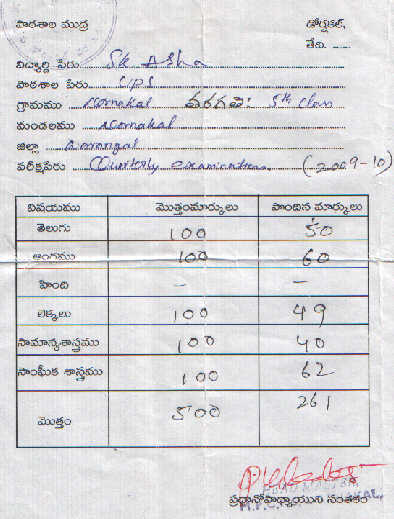 పాఠశాల ముద్ర
డోర్నకల్,
తేది. ......
విద్యార్థి పేరు SK Asha
పాఠశాల పేరు C.I.P.S
గ్రామము Dornakal తరగతి: 5th class
మండలము Dornakal
జిల్లా Warangal
పరీక్షపేరు Quarterly examinations (2009-10)
విషయము మొత్తంమార్కులు పొందిన మార్కులు
తెలుగు 100 50
ఆంగ్లము 100 60
హింది - -
లెక్కలు 100 49
సామాన్యశాస్త్రము 100 40
సాంఘీక శాస్త్రము 100 62
మొత్తం 500 261
ప్రధానోపాధ్యాయుని సంతకం